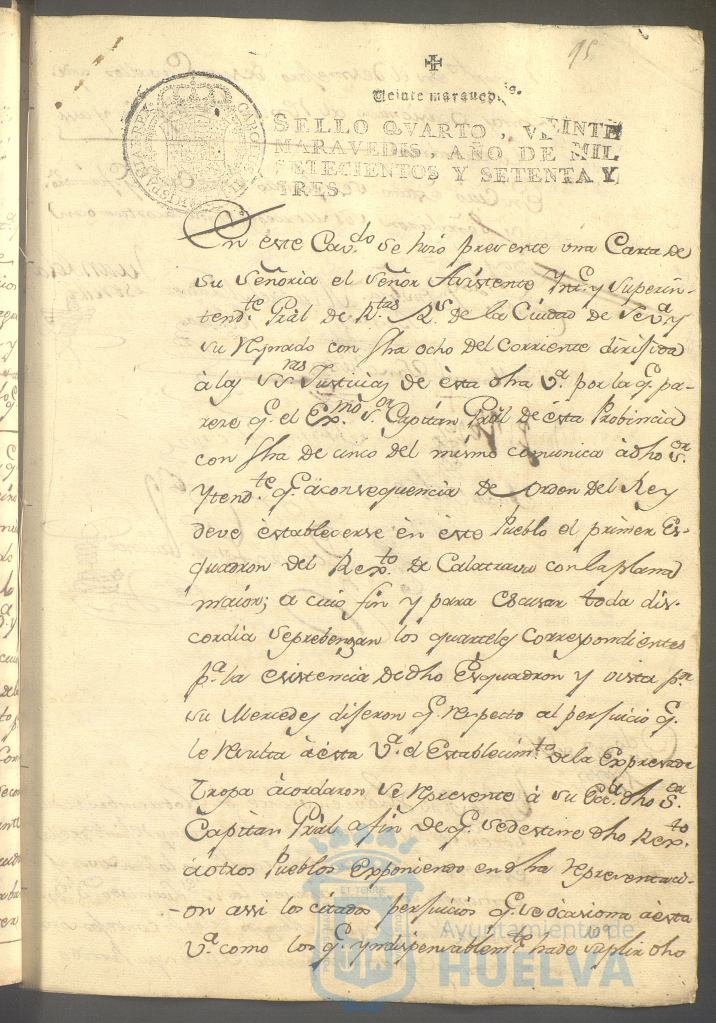 95
Veinte maraued.is.
SELLO QVARTO, VEINTE
MARAVEDIS, AÑO DE MIL
SETECIENTOS Y SETENTA Y
TRES.
En este Cav.do se hizo presente una Carta de
su señoria el señor Asistente Yn.te y superin-
tend.te Gràl de R.tas R.s de la Ciudad de Sev.a y
su Reynado con fha ocho del corriente dirijida
à las SS.ras Justicias de èsta dha V.a por la q.e pa-
reze q.e el Ex.mo S.or Capitàn Gràl de èsta Probincia
con fha de cinco del mismo comunica àdho S.or
Ytend.te q.e àconsequencia de orden del Rey
deve èstablecerse èn èste Pueblo el primer Es-
quadron del Rex.to de Calatrava con la plana
maior; a cuio fin y para escusar toda dis-
cordia seprebengan los quarteles correspondientes
p.a la existencia de dho Esquadron y vista p.r
su Mercedes dijeron q.e respecto al perjuicio q.e
le resulta àèsta V.a el Establecim.to de la Expresada
Tropa àcordaron se represente à su Exc.a dho S.or
Capitàn Gràl afin de q.e sedestine dho Rex.to
àotros Pueblos Exponiendo en dha representaci-
-on assi los citados perjuicios q.e se ocasiona àèsta
V.a como los q.e yndispensablem.te hade suplir dho
ET TERRE
Ayuntamiento de
HUELVA